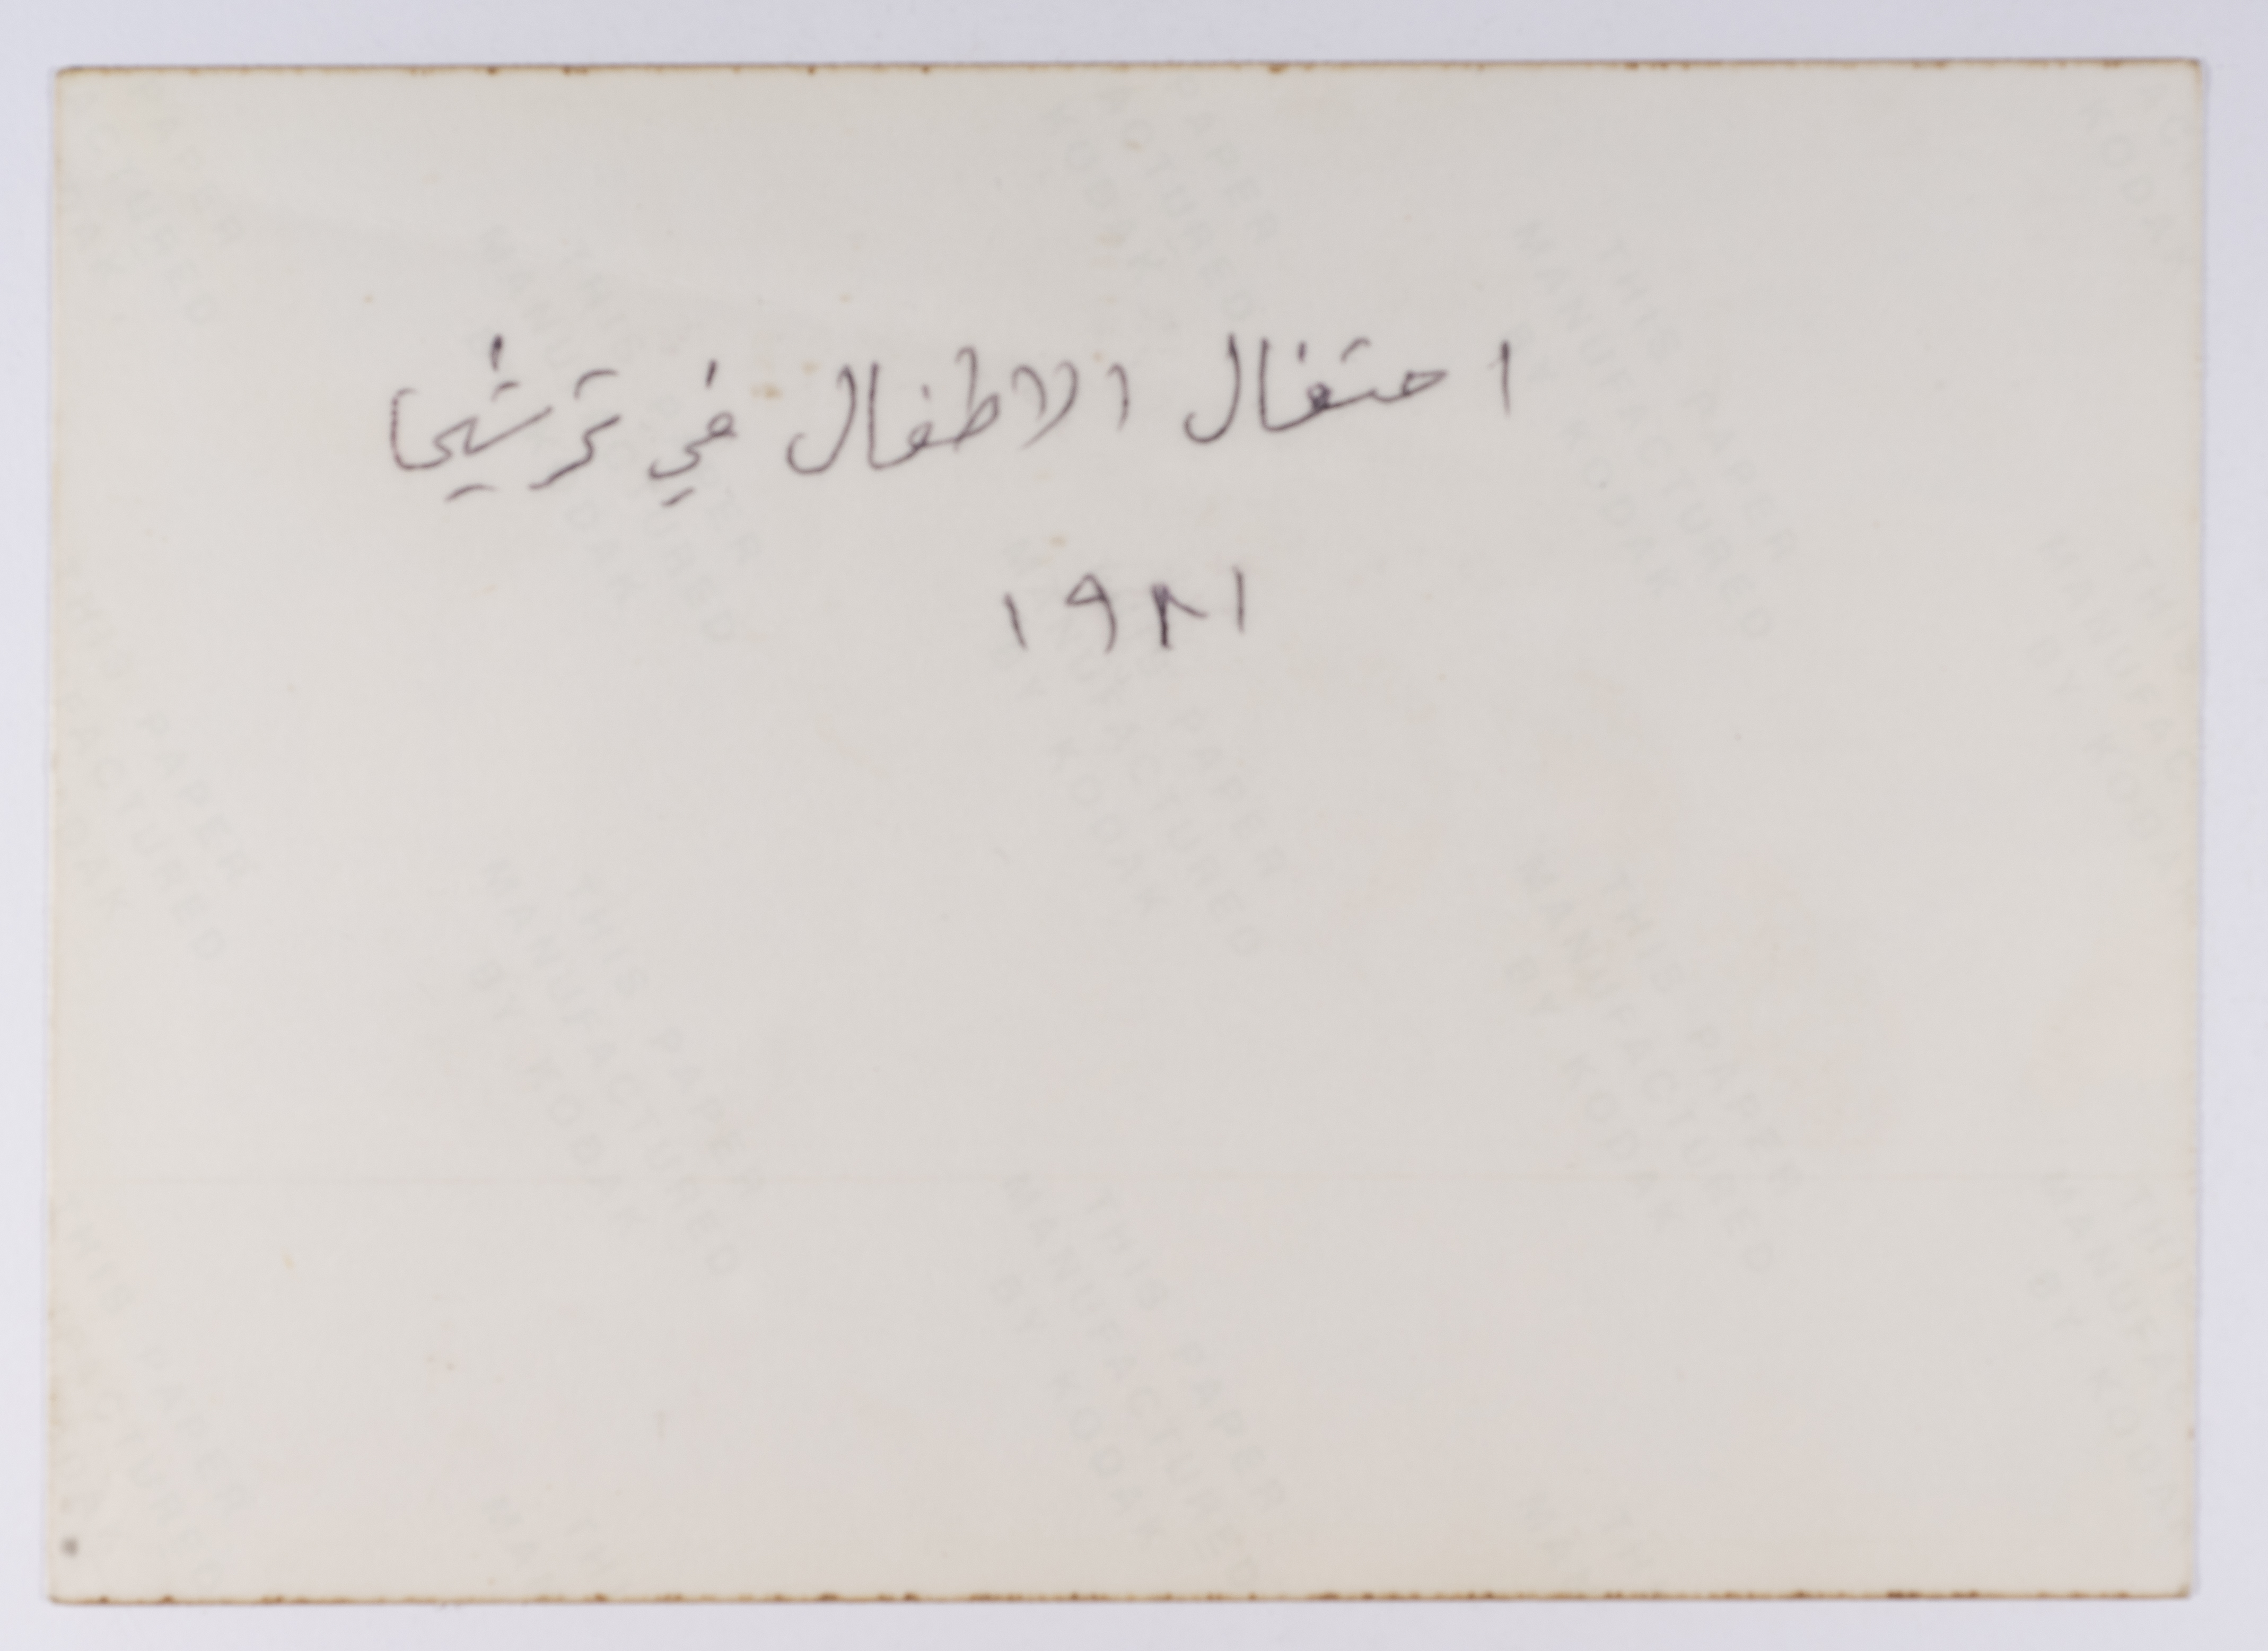 احتفال الاطفال في ترشيحا
١٩٨١
THIS PAPER
MANUFACTURED
BY KODAK